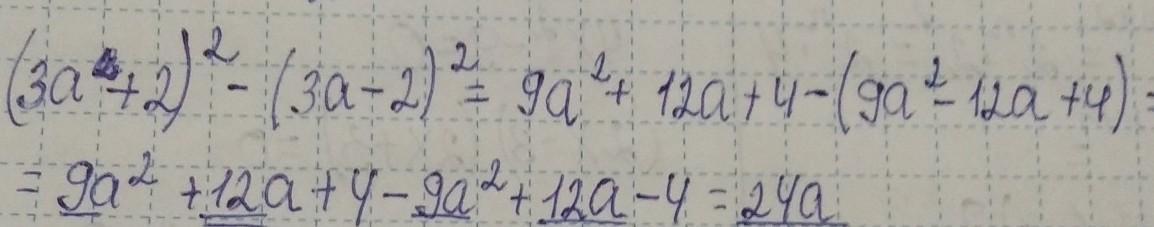 (3a+2)² - (3a-2)² = 9a² + 12a + 4 - (9a² - 12a + 4) =
= 9a² + 12a + 4 - 9a² + 12a - 4 = 24a